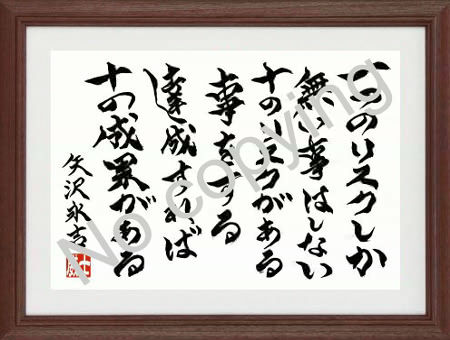 一つのリスクしか
無い事はしない
十のリスクがある
事をする
達成すれば
十の成果がある
矢沢永吉
No copying